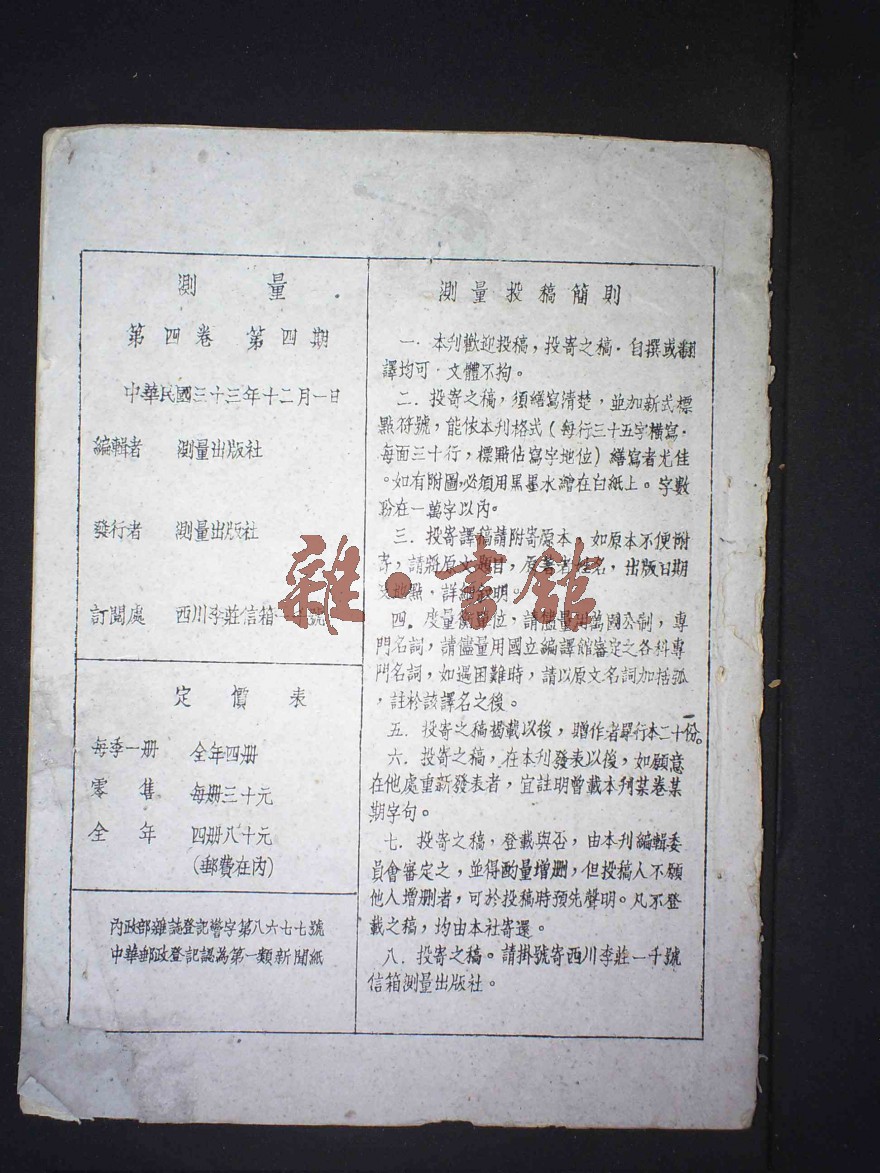 測量
第四卷 第四期
中華民國三十三年十二月一日
編輯者 測量出版社
發行者 測量出版社
訂閱處 西川李莊信箱一千號
定價表
每季一册 全年四册
零售 每册三十元
全年 四册八十元
(郵費在內)
內政部雜誌登記警字第八六七七號
中華郵政登記認為第一類新聞紙
測量投稿簡則
一．本刋歡迎投稿，投寄之稿．自撰或翻
譯均可．文體不拘。
二．投寄之稿，須繕寫清楚，並加新式標
點符號，能依本刋格式(每行三十五字橫寫．
每面三十行，標點佔寫字地位)繕寫者尤佳
。如有附圖，必須用黑墨水繪在白紙上。字數
盼在一萬字以內。
三．投寄譯稿請附寄原本．如原本不便附
寄，請將原文題目，原著者姓名，出版日期
及地點，詳細說明。
四．度量衡單位，請儘量用萬國公制，專
門名詞，請儘量用國立編譯館審定之各科專
門名詞，如遇困難時，請以原文名詞加括弧
，註於該譯名之後。
五．投寄之稿揭載以後，贈作者單行本二十份。
六．投寄之稿，在本刋發表以後，如願意
在他處重新發表者，宜註明曾載本刋某卷某
期字句。
七．投寄之稿，登載與否，由本刋編輯委
員會審定之，並得酌量增刪，但投稿人不願
他人增刪者，可於投稿時預先聲明。凡不登
載之稿，均由本社寄還。
八．投寄之稿。請掛號寄西川李莊一千號
信箱測量出版社。
雜·書館